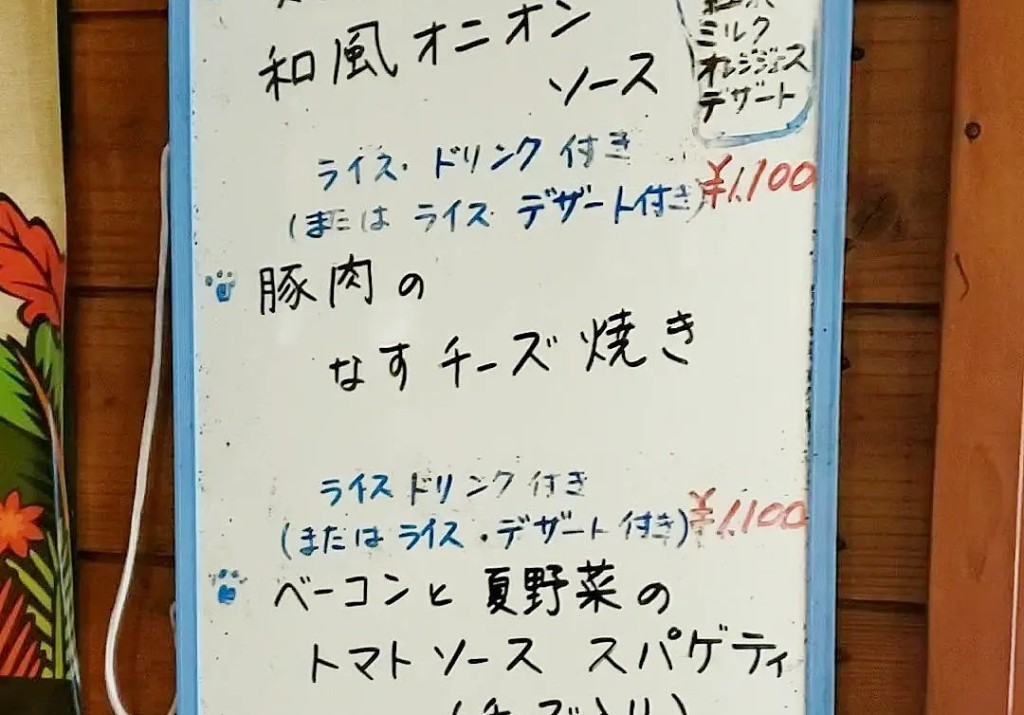 和風オニオン
ソース
ミルク
オレンジジュース
デザート
ライス・ドリンク付き
(または ライス デザート付き) ¥1,100
豚肉の
なすチーズ焼き
ライス ドリンク付き
(または ライス・デザート付き) ¥1,100
ベーコンと夏野菜の
トマトソース スパゲティ
(チーズ入り)